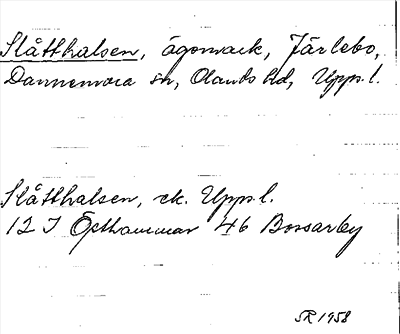 Slåtthalsen, ägomark, Järlebo,
Dannemora sn, Olands hd, Upps.l.
Slåtthalsen, ek. Upps.l.
12 I Östhammar 46 Bossarby
SR 1958